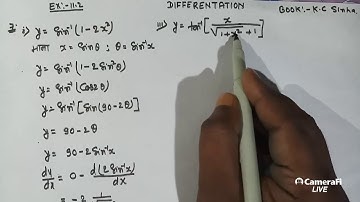 Ex:- 11.2
DIFFERENTATION
BOOK:- K.C Sinha
3. i) y = sin⁻¹(1-2x²)
माना x = sinθ ; θ = sin⁻¹x
y = sin⁻¹(1-2sin²θ)
y = sin⁻¹(cos2θ)
y = sin⁻¹[sin(90-2θ)]
y = 90-2θ
y = 90-2sin⁻¹x
dy/dx = 0 - d(2sin⁻¹x)/dx
iii) y = tan⁻¹[x/√1+x² +1]
CameraFi
LIVE